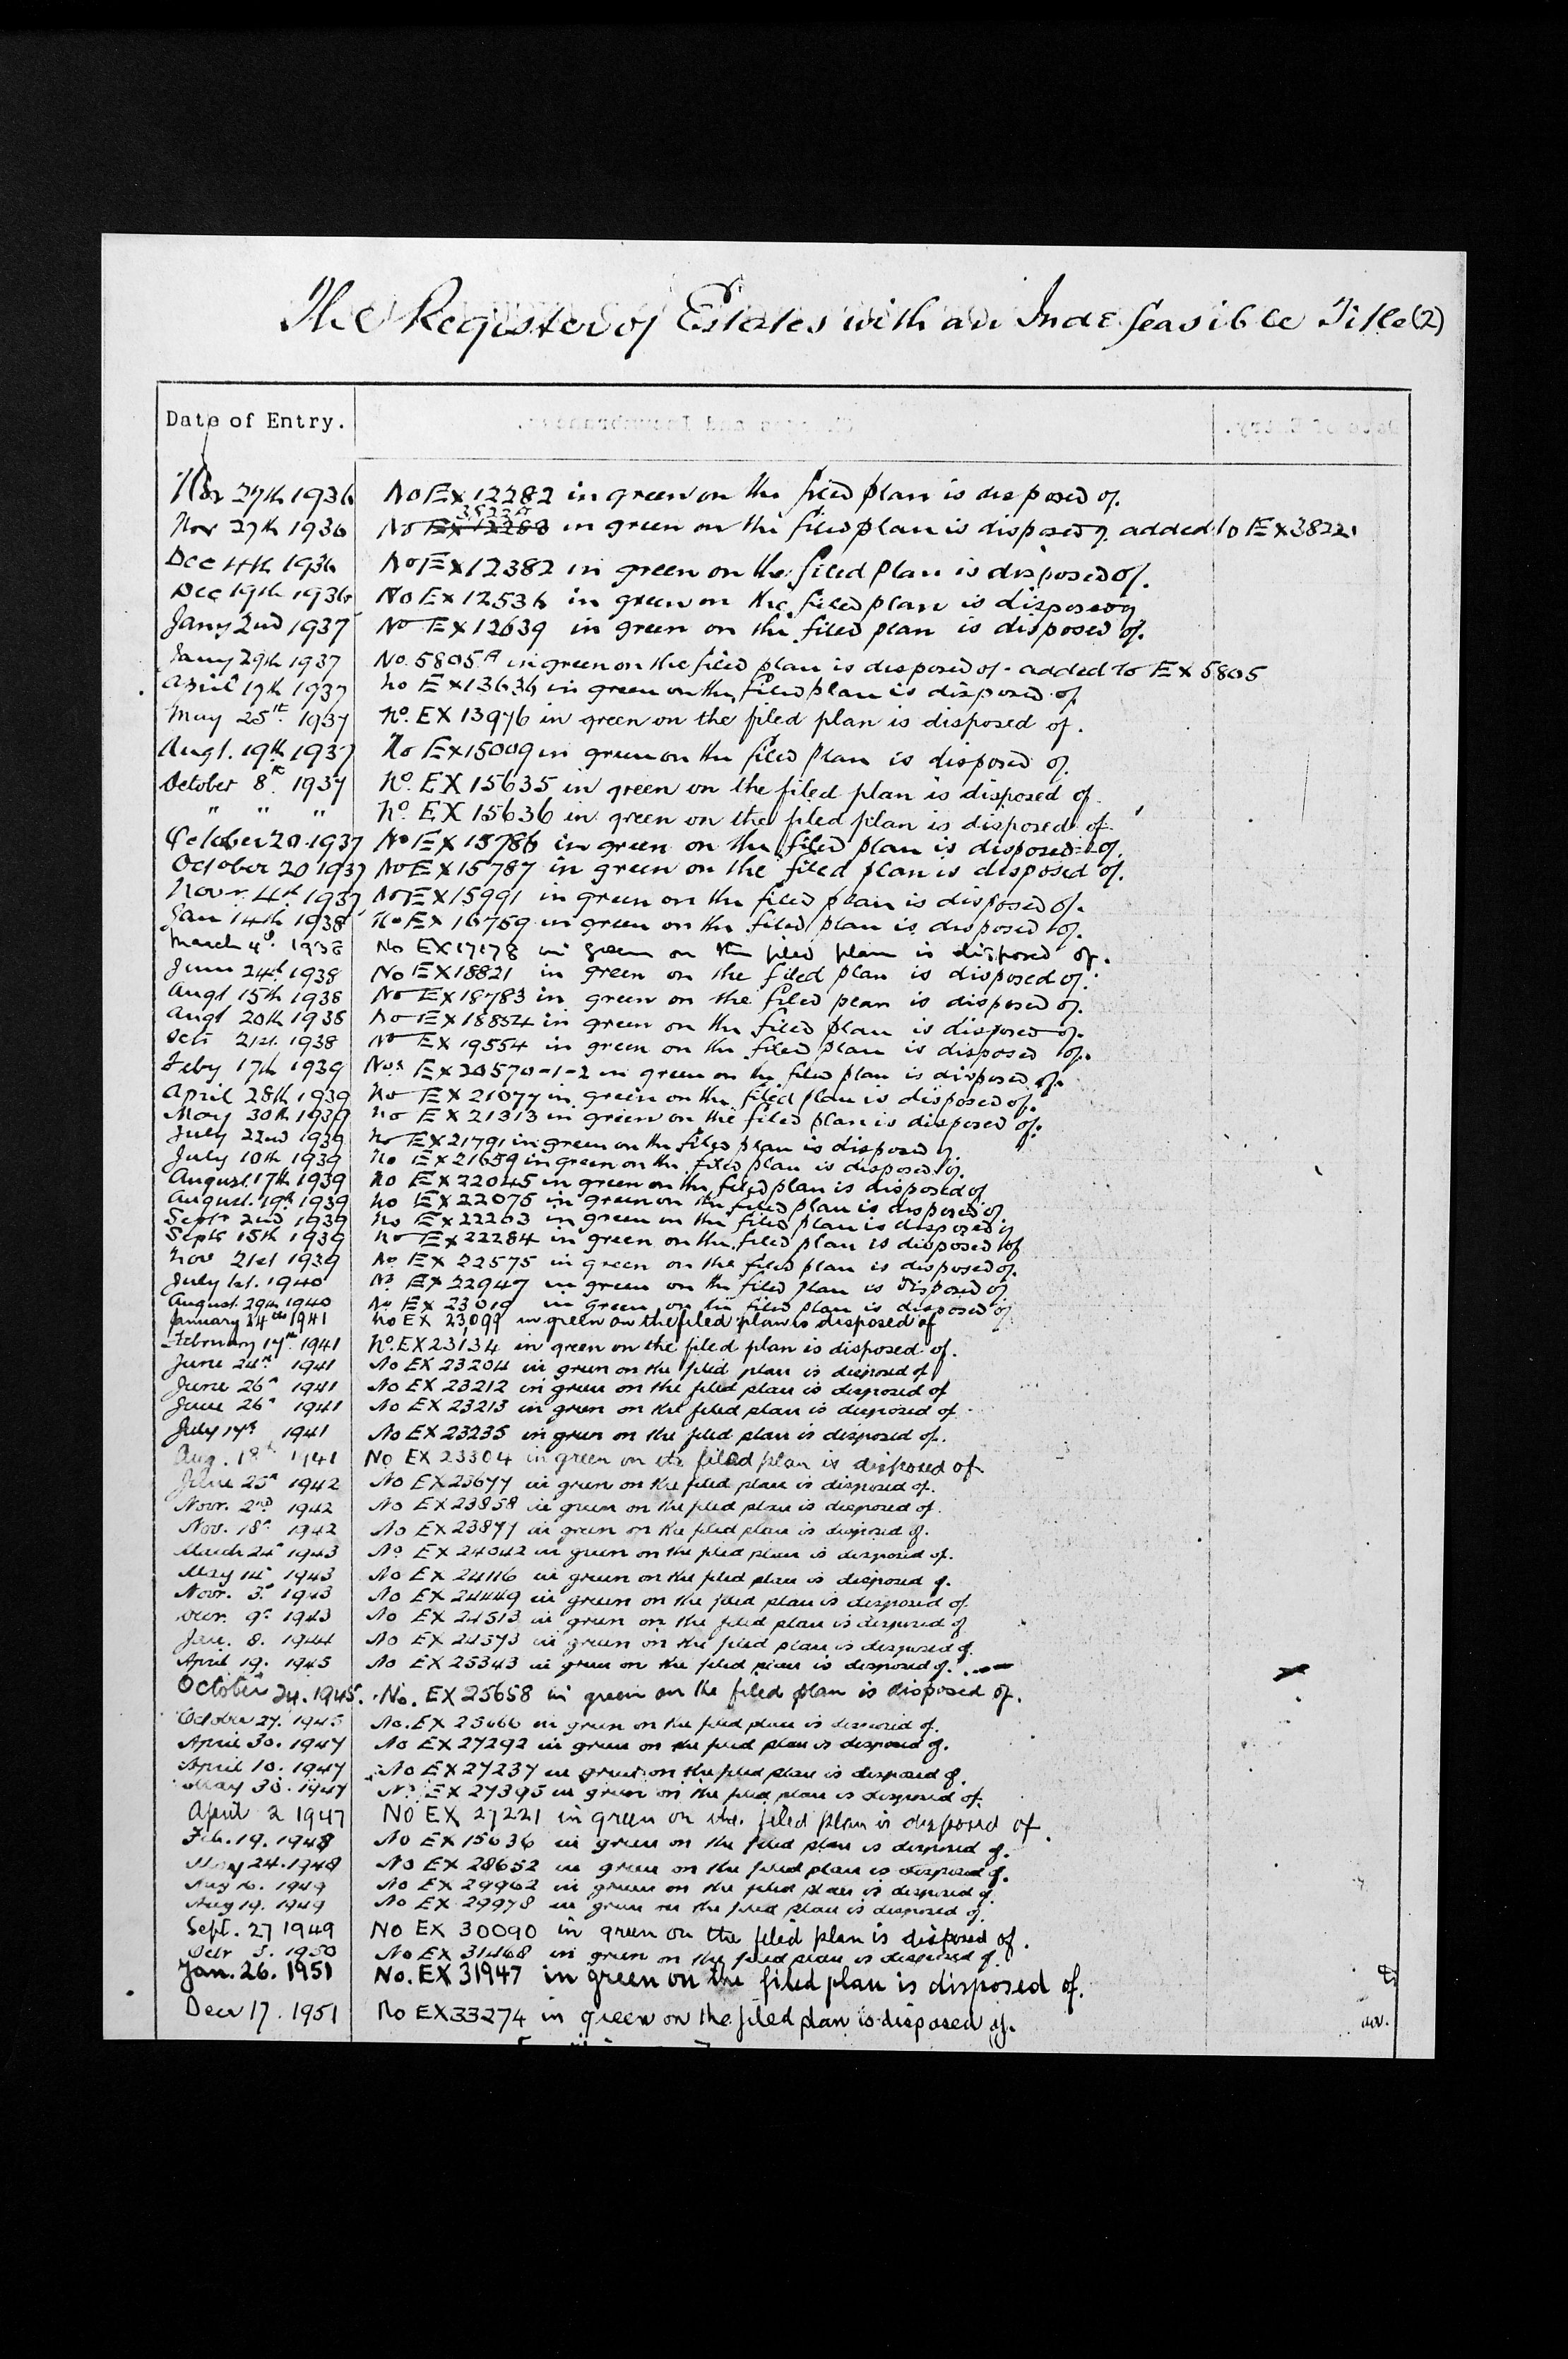 The Register of Estates with an Indefeasible Title (2)
Date of Entry.
Nov 27th 1936 No Ex 12282 in green on the filed plan is disposed of.
Nov 27th 1936 No Ex 12283 3822A in green on the filed plan is disposed of. added to Ex 3822
Dec 4th 1936 No Ex 12382 in green on the filed Plan is disposed of.
Dec 19th 1936 No Ex 12536 in green on the filed plan is disposed of
Jany 2nd 1937 No Ex 12639 in green on the filed plan is disposed of.
Jany 29th 1937 No. 5805A in green on the filed plan is disposed of - added to Ex 5805
April 17th 1937 No Ex 13636 in green on the filed plan is disposed of
May 25th 1937 No. EX 13976 in green on the filed plan is disposed of.
Augt. 19th 1937 No Ex 15009 in green on the filed plan is disposed of.
October 8th 1937 No. EX 15635 in green on the filed plan is disposed of.
" " " No. EX 15636 in green on the filed plan is disposed of.
October 20 1937 No Ex 15786 in green on the filed plan is disposed of.
October 20 1937 No Ex 15787 in green on the filed plan is disposed of.
Novr. 4th 1937 No Ex 15991 in green on the filed plan is disposed of.
Jan 14th 1938 No Ex 16759 in green on the filed plan is disposed of.
March 4th 1938 No EX 17178 in green on the filed plan is disposed of.
June 24th 1938 No Ex 18821 in green on the filed plan is disposed of.
Augt 15th 1938 No Ex 18783 in green on the filed plan is disposed of.
Augt 20th 1938 No Ex 18834 in green on the filed plan is disposed of.
Oct 21st. 1938 No Ex 19554 in green on the filed plan is disposed of.
Feby 17th 1939 Nos Ex 20570-1-2 in green on the filed plan is disposed of.
April 28th 1939 No EX 21077 in green on the filed plan is disposed of.
May 30th 1939 No EX 21313 in green on the filed plan is disposed of.
July 22nd 1939 No EX 21791 in green on the filed plan is disposed of.
July 10th 1939 No Ex 21659 in green on the filed plan is disposed of.
August 17th 1939 No Ex 22045 in green on the filed plan is disposed of
August. 19th 1939 No Ex 22075 in green on the filed plan is disposed of
Septr 2nd 1939 No Ex 22203 in green on the filed plan is disposed of
Septr 15th 1939 No Ex 22284 in green on the filed plan is disposed of
Nov 21st 1939 No EX 22575 in green on the filed plan is disposed of.
July 1st. 1940 No Ex 22947 in green on the filed plan is disposed of
August 29th 1940 No Ex 23019 in green on the filed plan is disposed of
January 24th 1941 No EX 23099 in green on the filed plan is disposed of
February 17th 1941 No. EX 23134 in green on the filed plan is disposed of.
June 24th 1941 No EX 23204 in green on the filed plan is disposed of
June 26th 1941 No EX 23212 in green on the filed plan is disposed of
June 26th 1941 No EX 23213 in green on the filed plan is disposed of.
July 17th 1941 No EX 23235 in green on the filed plan is disposed of.
Aug. 18th 1941 No EX 23304 in green on the filed plan is disposed of
June 25th 1942 No EX 23677 in green on the filed plan is disposed of.
Novr. 2nd 1942 No EX 23858 in green on the filed plan is disposed of.
Nov. 18th 1942 No EX 23877 in green on the filed plan is disposed of.
March 24th 1943 No EX 24042 in green on the filed plan is disposed of.
May 14th 1943 No EX 24116 in green on the filed plan is disposed of.
Novr. 3rd 1943 No EX 24449 in green on the filed plan is disposed of.
9th 1943 No EX 24513 in green on the filed plan is disposed of
Jan. 8. 1944 No EX 24573 in green on the filed plan is disposed of.
April 19. 1945 No EX 25343 in green on the filed plan is disposed of.
October 24. 1945. No. EX 25658 in green on the filed plan is disposed of.
October 27. 1945 No. EX 25666 in green on the filed plan is disposed of.
April 30. 1947 No EX 27292 in green on the filed plan is disposed of.
April 10. 1947 No EX 27237 in green on the filed plan is disposed of.
May 30. 1947 No EX 27395 in green on the filed plan is disposed of.
April 2 1947 NO EX 27221 in green on the filed plan is disposed of.
Feb. 19. 1948 No EX 15636 in green on the filed plan is disposed of.
May 24. 1948 No EX 28652 in green on the filed plan is disposed of.
Aug 16. 1949 No EX 29962 in green on the filed plan is disposed of
Aug 19. 1949 No EX 29978 in green on the filed plan is disposed of.
Sept. 27 1949 NO EX 30090 in green on the filed plan is disposed of.
5. 1950 No EX 31468 in green on the filed plan is disposed of.
Jan. 26. 1951 No. EX 31947 in green on the filed plan is disposed of.
Decr 17. 1951 No EX 33274 in green on the filed plan is disposed of.